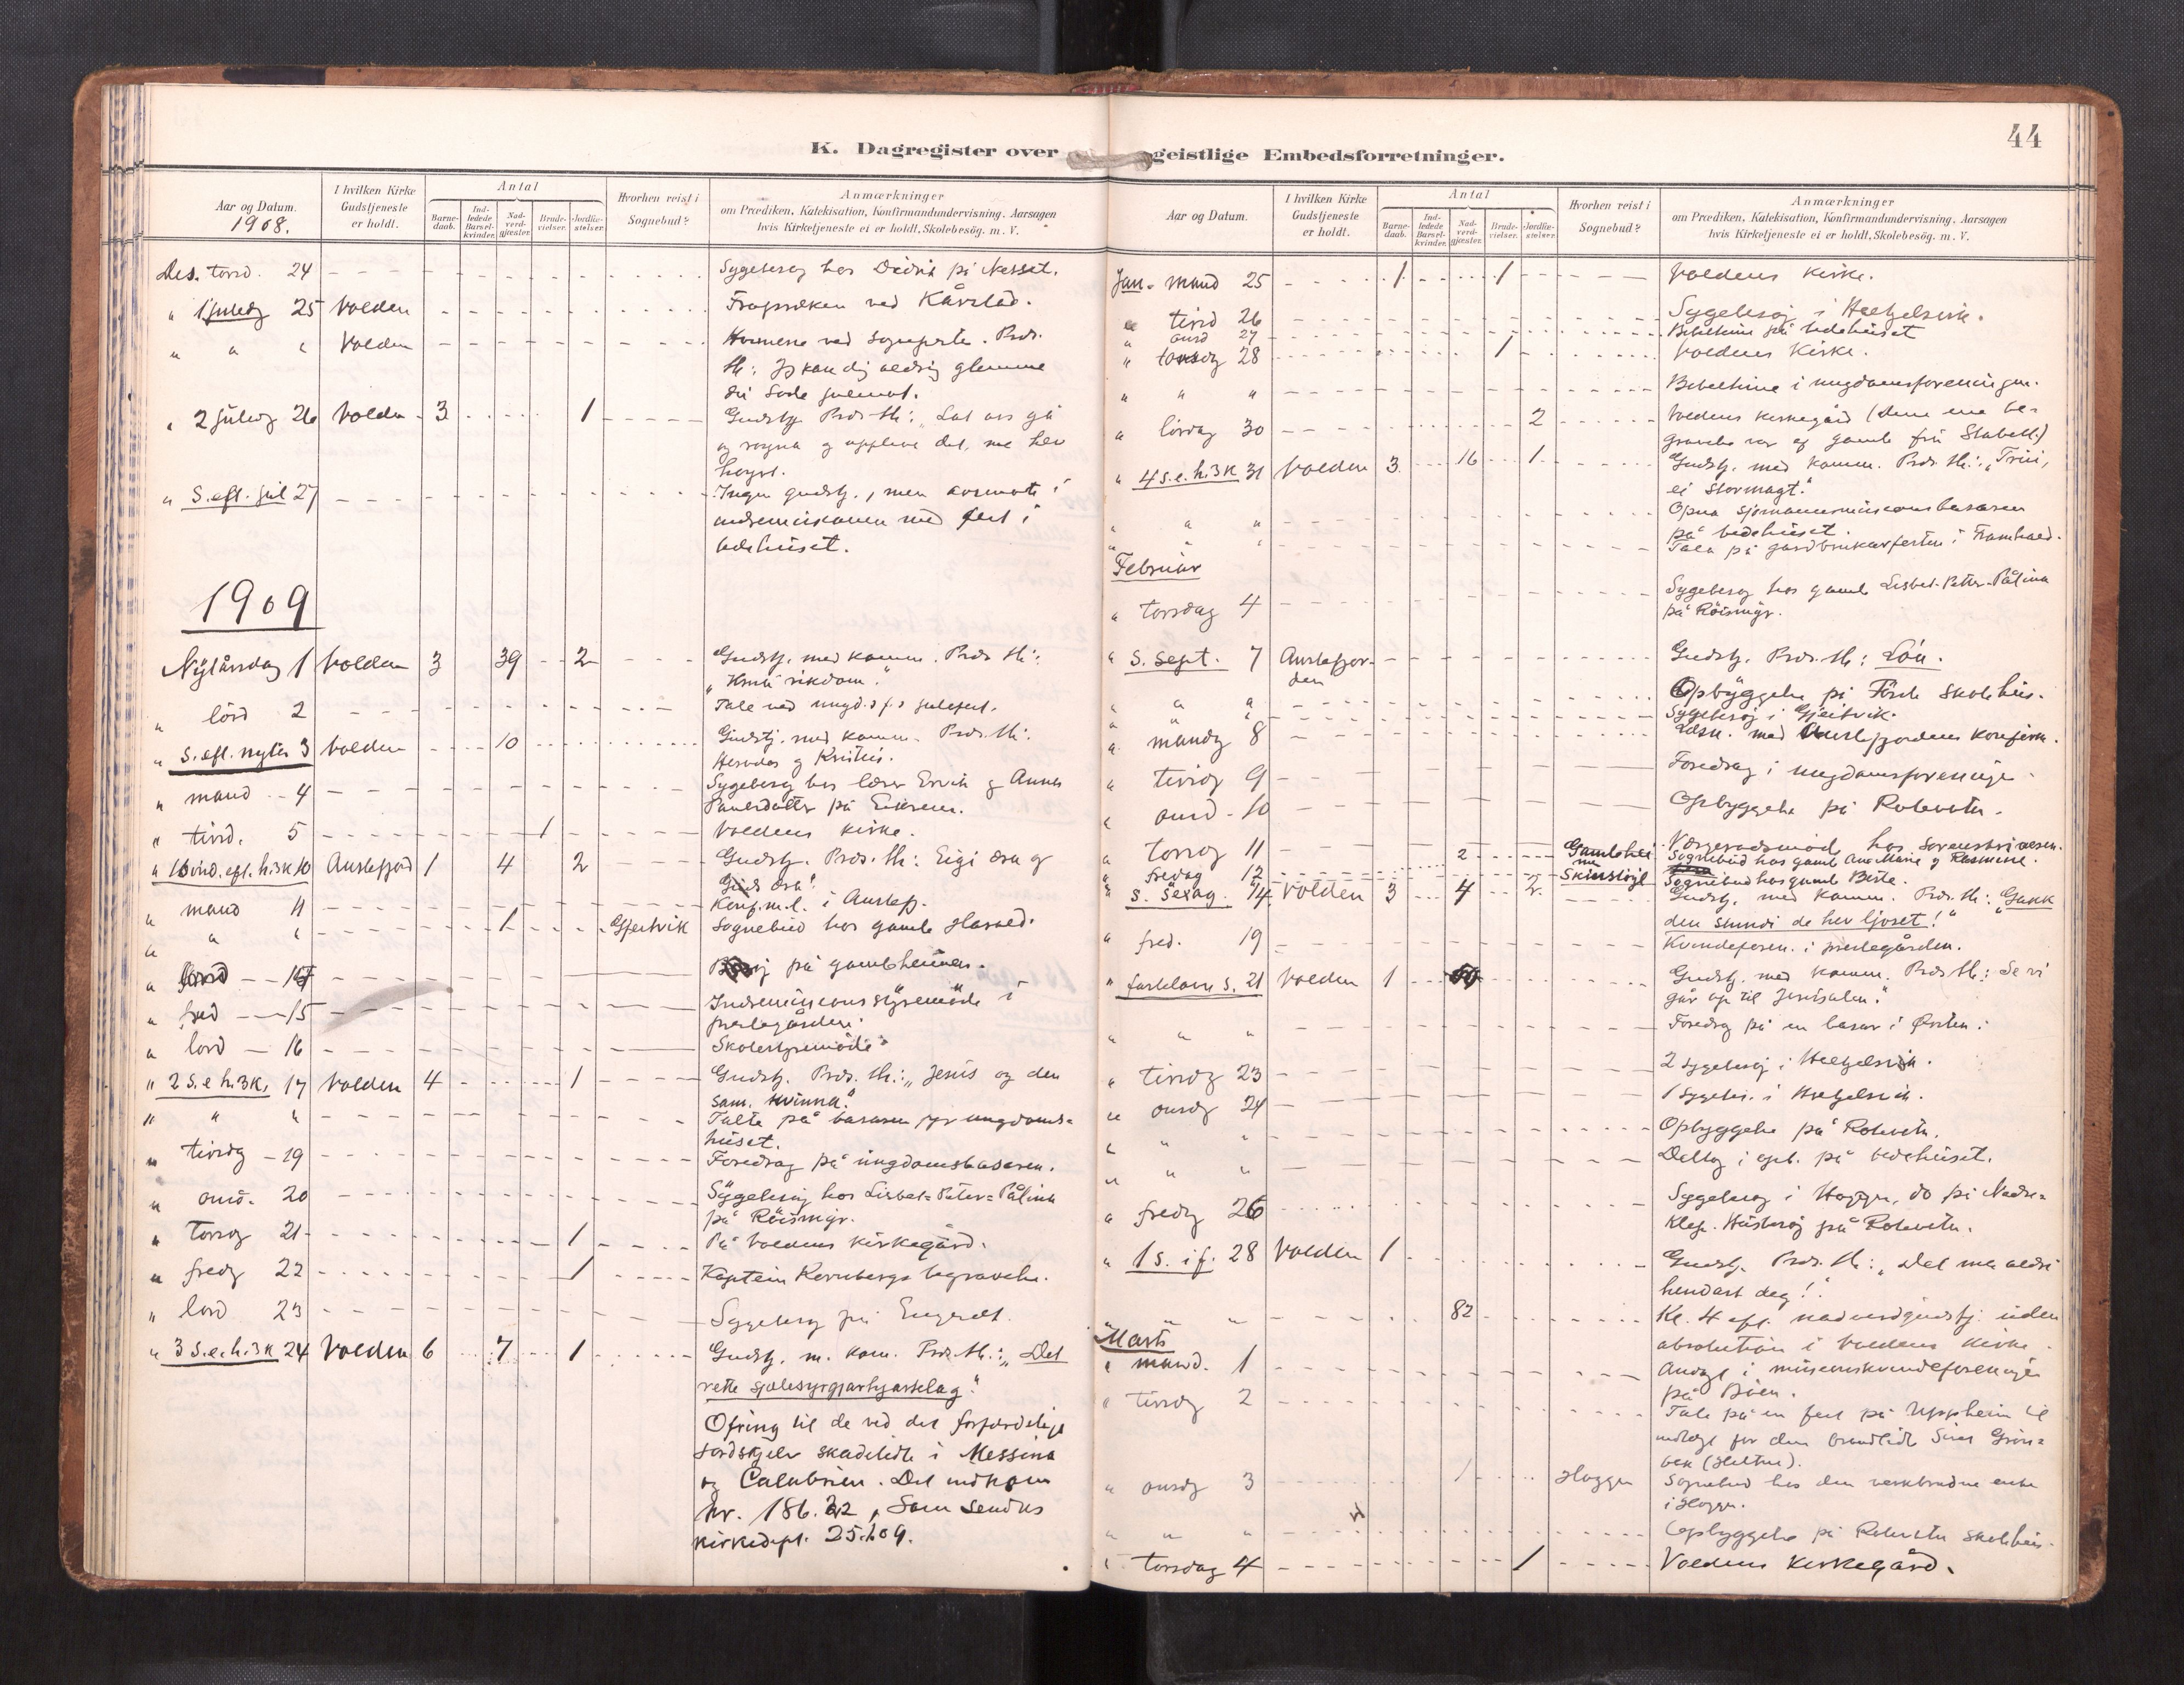 44
K. Dagregister over geistlige Embedsforretninger.
Aar og Datum.
1908.
I hvilken Kirke Gudstjeneste er holdt.
Antal
Barnedaab.
Indledede Barselkvinder.
Nadverdgjæster.
Brudevielser.
Jordfæstelser.
Hvorhen reist i Sognebud?
Anmærkninger
om Prædiken, Katekisation, Konfirmandundervisning, Aarsagen
hvis Kirketjeneste ei er holdt, Skolebesög. m. V.
Des. torsd. 24 Sygebesøg hos på Nesset.
" 1 juledg 25 Volden ved Kårstad.
" " " Volden
Jeg kan dig aldrig glemme
" 2 juledg 26 Volden 3 1 Gudstj. Præs. th.: "Lat oss gå
det, me hev
høyrt.
" S. eft. jul 27 Ingen gudstj., men årsmøte i
indremisionen med fest i
bedehuset.
1909
Nyårsdag 1 Volden 3 39 2 Gudstj. med komm. Præs. th.:
" rikdom."
" lörd 2 Tale ved ungd. julefest.
" S. eft. nytår 3 Volden 10 Gudstj. med komm. Præs. th.:
Herodes og Kristus.
" mand 4 Sygebesøg hos lærer og Anna
på
" tirsd. 5 1 Voldens kirke.
" 1 sönd. eft. h.3k 10 Austefjord 1 4 2 Gudstj. Præs. th.: Eigi æra og
Guds æra!
" mand 11 Konf. m. l. i Austefj.
" " " 1 Gjeitvik Sognebud hos gamle
på gamleheimen.
" fred 15 Indremisions styremöde i
prestegården.
" lörd 16 Skolestyremöde
" 2 S. e h.3k. 17 Volden 4 1 Gudstj. Præs. th.: "Jesus og den
sam. kvinna."
" " " Talte på basaren for ungdoms=
huset.
" tirsdg 19 Foredrag på ungdomsbasaren.
" onsd. 20 Sygebesøg hos Lisbet=Peter=Pålina
på Röismyr.
" Torsdg 21 1 På Voldens kirkegård.
" fredg 22 1 Kaptein begravelse.
" lörd 23 Sygebesøg på
" 3 S. e. h. 3k 24 Volden 6 7 1 Gudstj. m. kom. Præs. th.: "Det
rette
Ofring til de ved det forfærdelige
jordskjelv skadelidte i Messina
og Calabrien. Det indkom
kr. 186.22, Som sendtes
kirkedept. 25.1.09.
Aar og Datum.
I hvilken Kirke Gudstjeneste er holdt.
Antal
Barnedaab.
Indledede Barselkvinder.
Nadverdgjæster.
Brudevielser.
Jordfæstelser.
Hvorhen reist i Sognebud?
Anmærkninger
om Prædiken, Katekisation, Konfirmandundervisning, Aarsagen
hvis Kirketjeneste ei er holdt, Skolebesög. m. V.
Jan. mand 25 1 1 Voldens kirke.
" tirsd 26 Sygebesøg i Heltzelsvik.
" onsd 27 Bibeltime på bedehuset
" torsdg 28 1 Voldens Kirke.
" " " Bibeltime i ungdomsforeningen.
" lördag 30 2 Voldens kirkegård (Den ene be-
gravelse var af gamle fru Stabell.)
" 4 s. e. h. 3k 31 Volden 3 16 1 Gudstj. med komm. Præs. th.:
ei stormagt."
" " " Opna sjømannsmisionsbasaren
på bedehuset.
" " " Tala på gardbrukarfesten i Framhald.
Februar
" torsdag 4 Sygebesøg hos gamle Lisbet-Petter-Pålina
på Röismyr.
" S. Sept. 7 Austefjorden Gudstj. Præs. th.: Lön.
" " " Opbyggelse på skolehus.
" " " Sygebesøg i Gjeitvik.
" mandg 8 Læsn. med Austefjordens konfirm.
" tirsdg 9 Foredrag i ungdomsforeningen
" onsd. 10 Opbyggelse på Rotevatn.
" torsdg 11 Værgeraadsmöde hos sorenskriveren.
" fredag 12 2 Gamleheimen Sognebud hos gamle Ane Marie og Rasmine.
Sognebud hos gamle Berte.
" S. Sexag. 14 Volden 3 4 2 Gudstj. med komm. Præs. th.: "Gakk
den stundi de hev ljoset!"
" fred. 19 Kvindeforen. i prestegården.
" fastelavns S. 21 Volden 1 Gudstj. med komm. Præs. th.: Se vi
går op til Jerusalem."
" " " Foredrag på en basar i Ørsten.
" tirsdg 23 2 sygebesøg i Heltzelsvik.
" onsdg 24 1 Sygebes. i Heltzelsvik.
" " " Opbyggelse på Rotevatn.
" " " Deltog i opb. på bedehuset.
" fredg 26 Sygebesøg i Heggen, do på Nedre=
klep. Husbesøg på Rotevatn.
" 1 S. i f. 28 Volden 1 Gudstj. Præs. th.: "Det må aldri
hendast deg!"
" " " 82 Kl. 4 eft. nadverdgudstj. uden
absolution i Voldens kirke.
Marts
" mand. 1 Andagt i misionskvindeforeningen
på Böen.
" tirsdg 2 Tale på en fest på Uppheim til
indtægt for den brandlidte
" onsdg 3 1 Heggen Sognebud hos den enke
i Heggen.
" " " Opbyggelse på Rotevatn skolehus.
" torsdag 4 1 Voldens kirkegård.